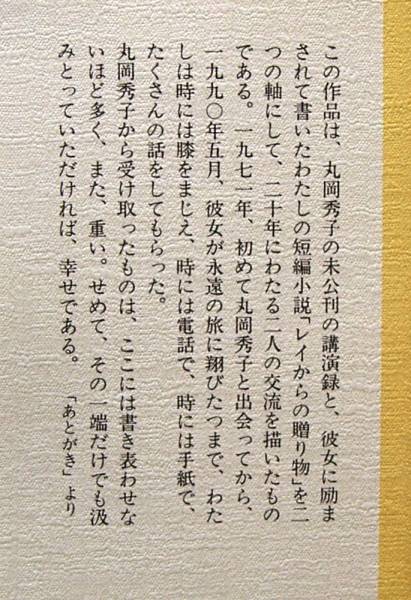 この作品は、丸岡秀子の未公刊の講演録と、彼女に励ま
されて書いたわたしの短編小説「レイからの贈り物」を二
つの軸にして、二十年にわたる二人の交流を描いたもの
である。一九七一年、初めて丸岡秀子と出会ってから、
一九九〇年五月、彼女が永遠の旅に翔びたつまで、わた
しは時には膝をまじえ、時には電話で、時には手紙で、
たくさんの話をしてもらった。
丸岡秀子から受け取ったものは、ここには書き表わせな
いほど多く、また、重い。せめて、その一端だけでも汲
みとっていただければ、幸せである。 「あとがき」より